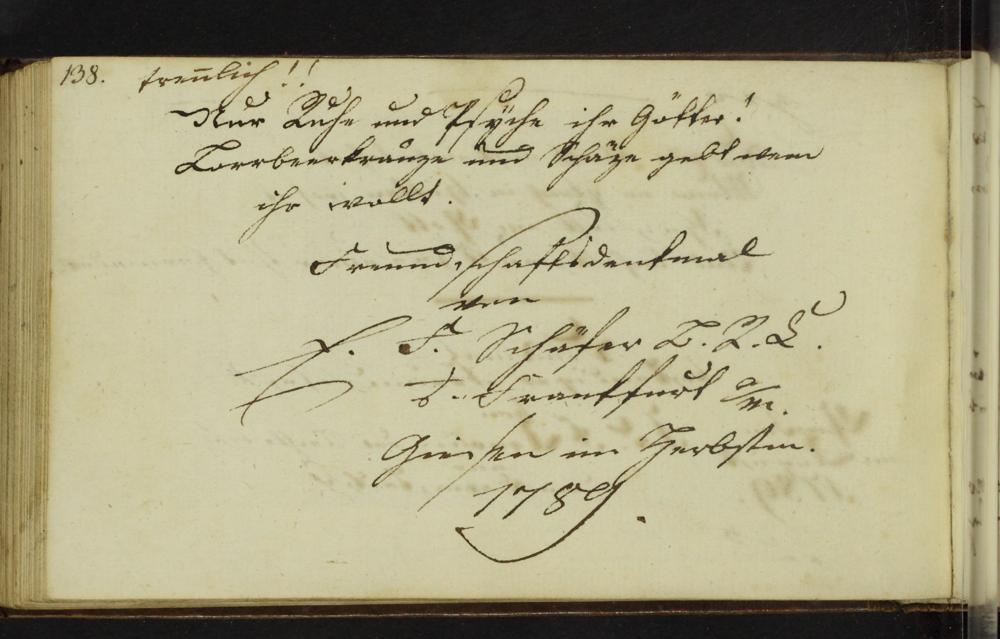 138. trennlich!!
Nur Ruhe und Psÿche ihr Götter!
Lorrbeerkränze und Schäze gebt wem
ihr wollt.
Freundschaftsdenkmal
von
F. Schäfer
Franckfurt a/m.
Giessen im Herbstm.
1789.